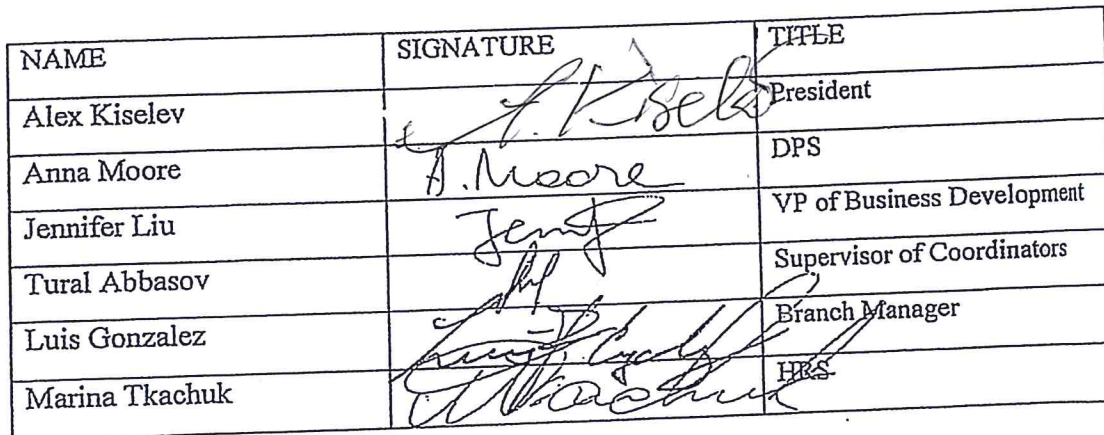 NAME SIGNATURE TITLE
Alex Kiselev A. Kiselev President
Anna Moore A. Moore DPS
Jennifer Liu Jennif VP of Business Development
Tural Abbasov Supervisor of Coordinators
Luis Gonzalez Branch Manager
Marina Tkachuk MTkachuk HRS